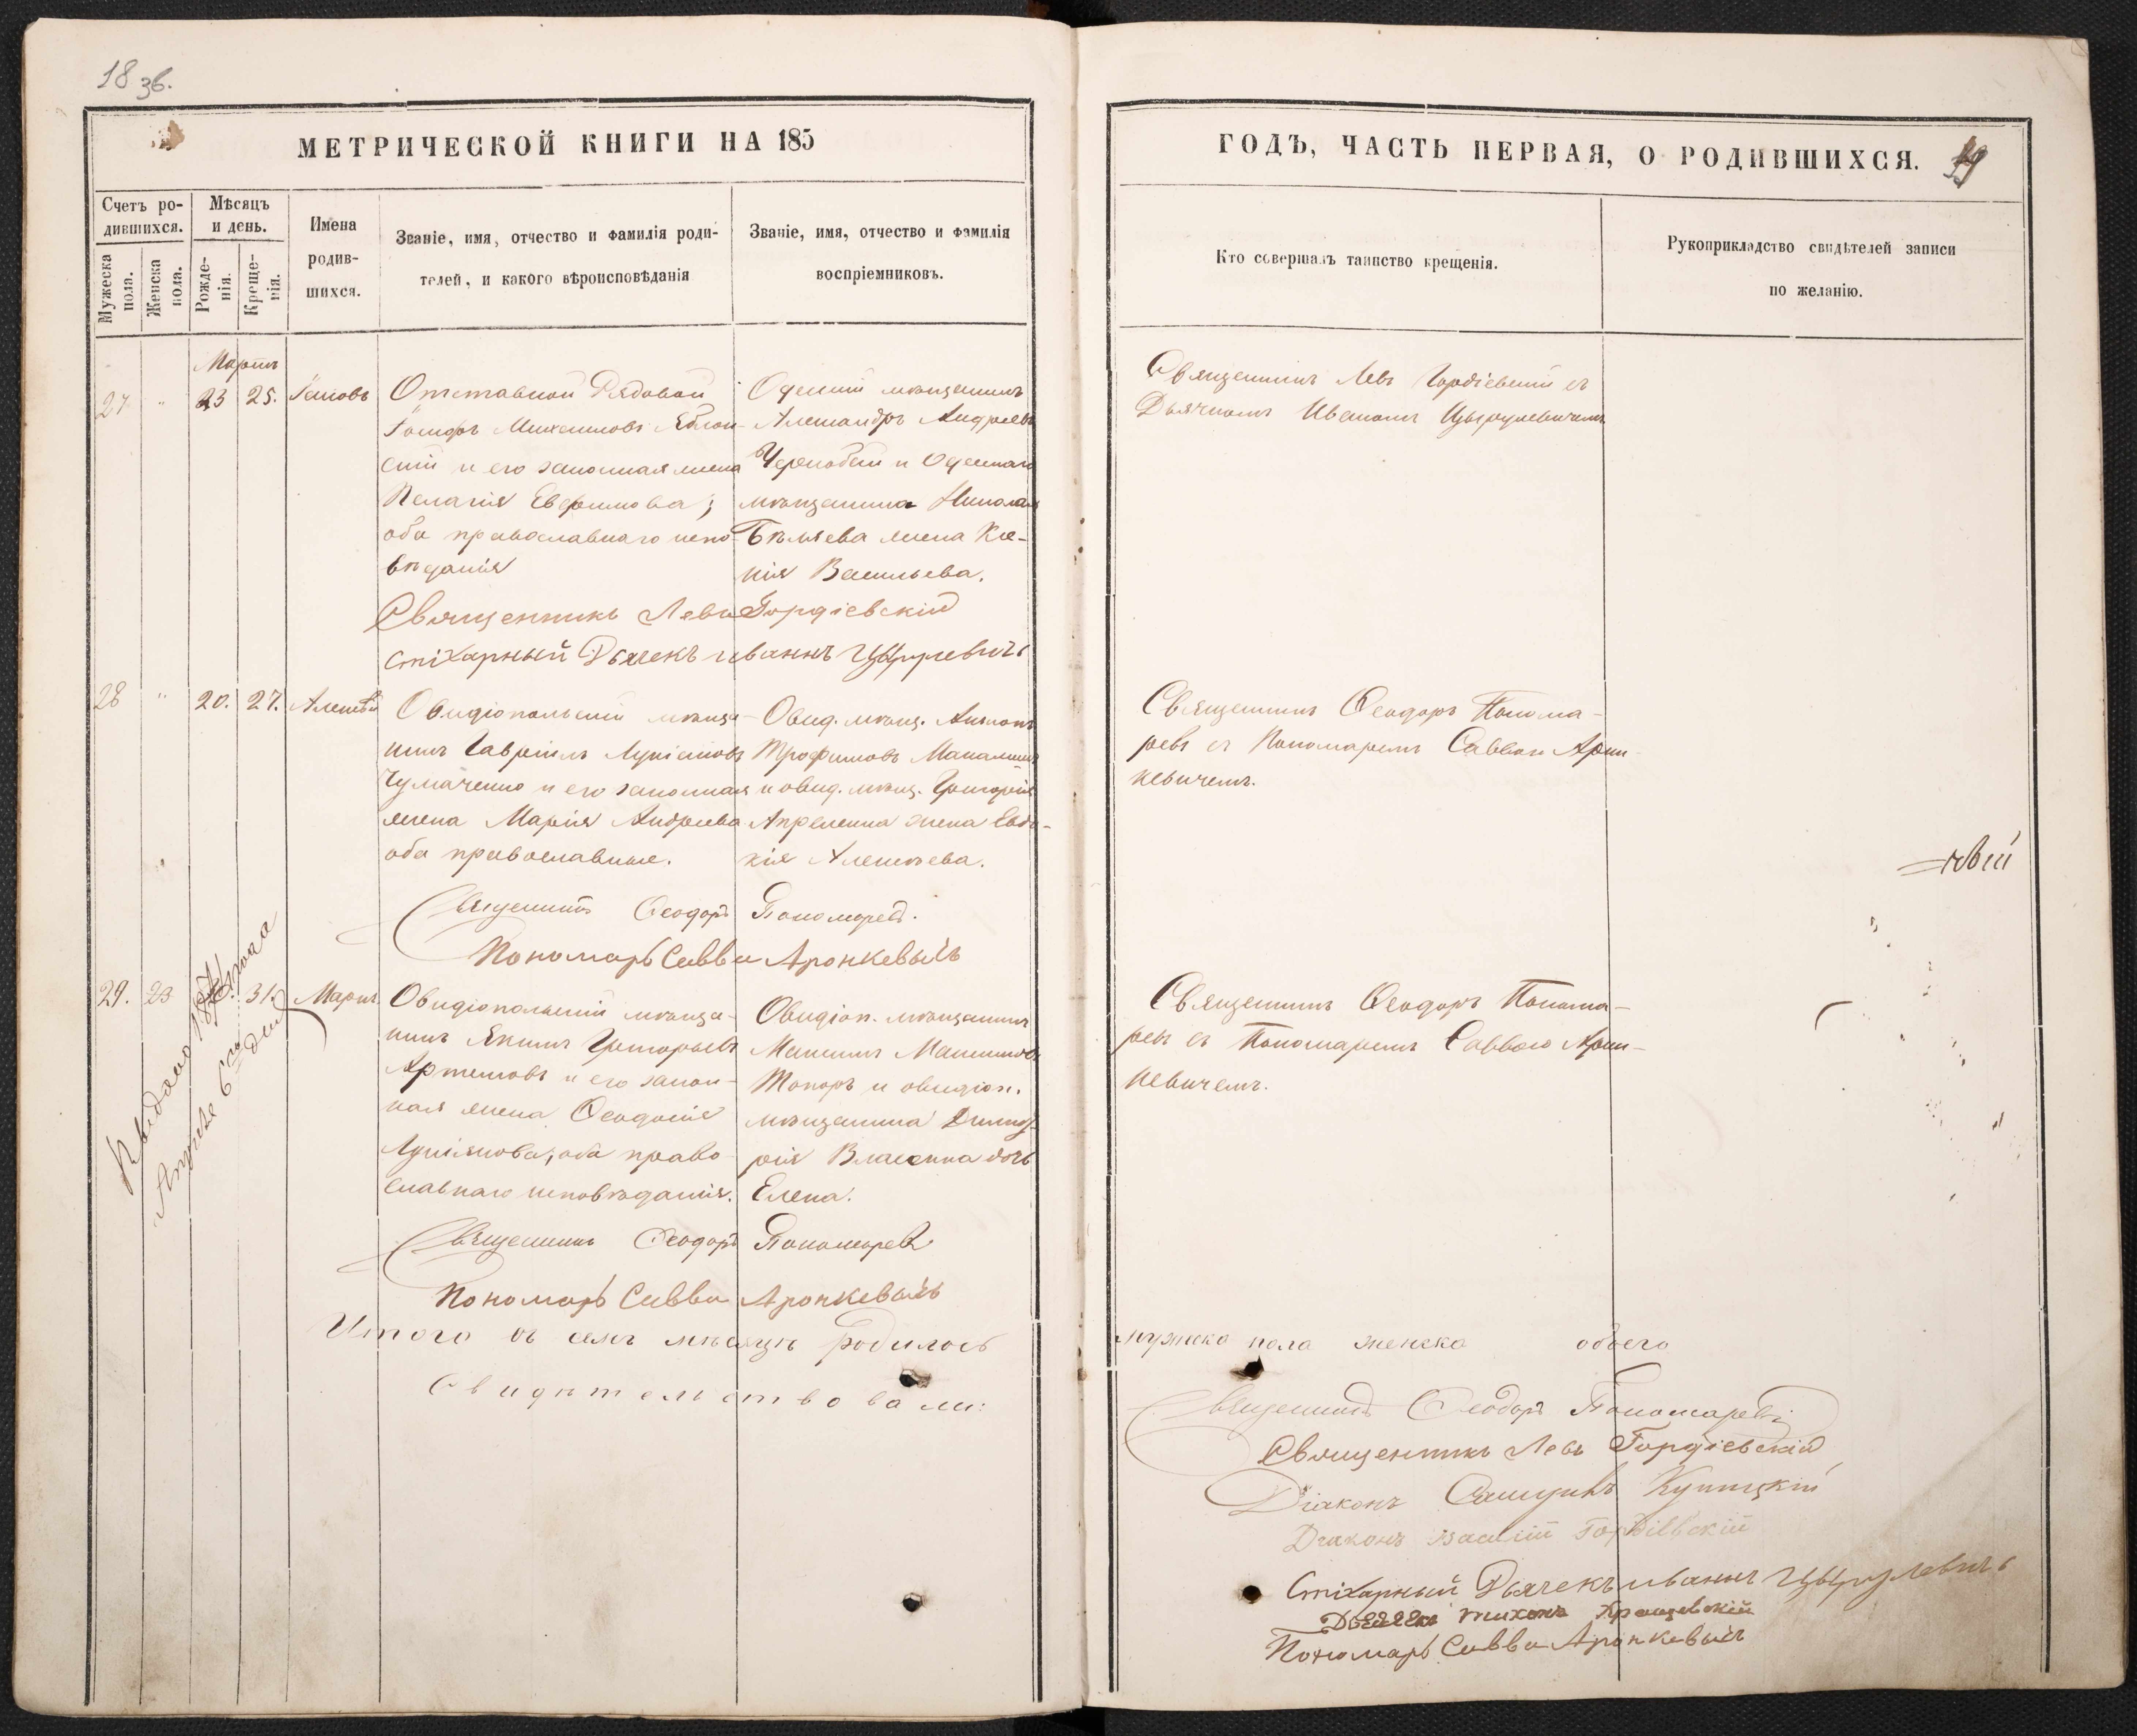 18 зв.
МЕТРИЧЕСКОЙ КНИГИ НА 185
Счетъ ро-
дившихся.
Мѣсяцъ
и день.
Мужеска
пола.
Женска
пола.
Рожде-
нія.
Креще-
нія.
Имена
родив-
шихся.
Званіе, имя, отчество и фамилія роди-
телей, и какого вѣроисповѣданія
Званіе, имя, отчество и фамилія
воспріемниковъ.
Мартъ
27 " 23 25. Іаковъ
Отставной Рядовой
Михаиловъ
скій и его законная жена
Пелагія Евфимова;
оба православнаго испо-
вѣданія
Одескій мѣщанинъ
Александръ Андреевъ
и Одескаго
мѣщанина Николая
Бѣляева жена Ксе-
нія Васильева.
Священникъ Левъ Гордіевскій
Стихарный Дьячекъ Иваннъ Цырулевичъ
28 " 20. 27. Алексѣй
Овидіопольскій мѣща-
нинъ Гавріилъ Лукіановъ
Чумаченко и его законная
жена Марія Андреева
оба православные.
Овид. мѣщ.
Трофимовъ
и овид. мѣщ. Григорія
жена Евдо-
кія Алексѣева.
Священникъ Ѳеодоръ Пономаревъ.
Пономарь Савва Аронкевычъ
29. 23 31. Марія
Овидіопольскій мѣща-
нинъ Якимъ Григорьевъ
Артемовъ и его закон-
ная жена Ѳеодосія
Лукіянова, оба право-
славнаго исповѣданія.
Овидіоп. мѣщанинъ
Максимъ Максимовъ
Токарь и овидіоп.
мѣщанина Димит-
рія Власенка дочь
Елена.
Священникъ Ѳеодоръ Пономаревъ
Пономарь Савва Аронкевычъ
Итого въ семъ мѣсяцѣ родилось
Свидѣтельствовали:
Выдано
Августа 6го дня
ГОДЪ, ЧАСТЬ ПЕРВАЯ, О РОДИВШИХСЯ.
19
Кто совершалъ таинство крещенія.
Рукоприкладство свидѣтелей записи
по желанію.
Священникъ Левъ Гордіевскій съ
Дьячкомъ Иваномъ Цырулевичемъ
Священникъ Ѳеодоръ Понома-
ревъ съ Пономаремъ Саввою Арон-
кевичемъ.
Священникъ Ѳеодоръ Понома-
ревъ съ Пономаремъ Саввою Арон-
кевичемъ.
мужеска пола женска обоего
Священникъ Ѳеодоръ Пономаревъ
Священникъ Левъ Гордіевскій
Діаконъ Купицкій
Діаконъ Василій Гордіевскій
Стихарный Дьячекъ Иваннъ Цырулевичъ
Дьячекъ Тихонъ
Пономарь Савва Аронкевычъ